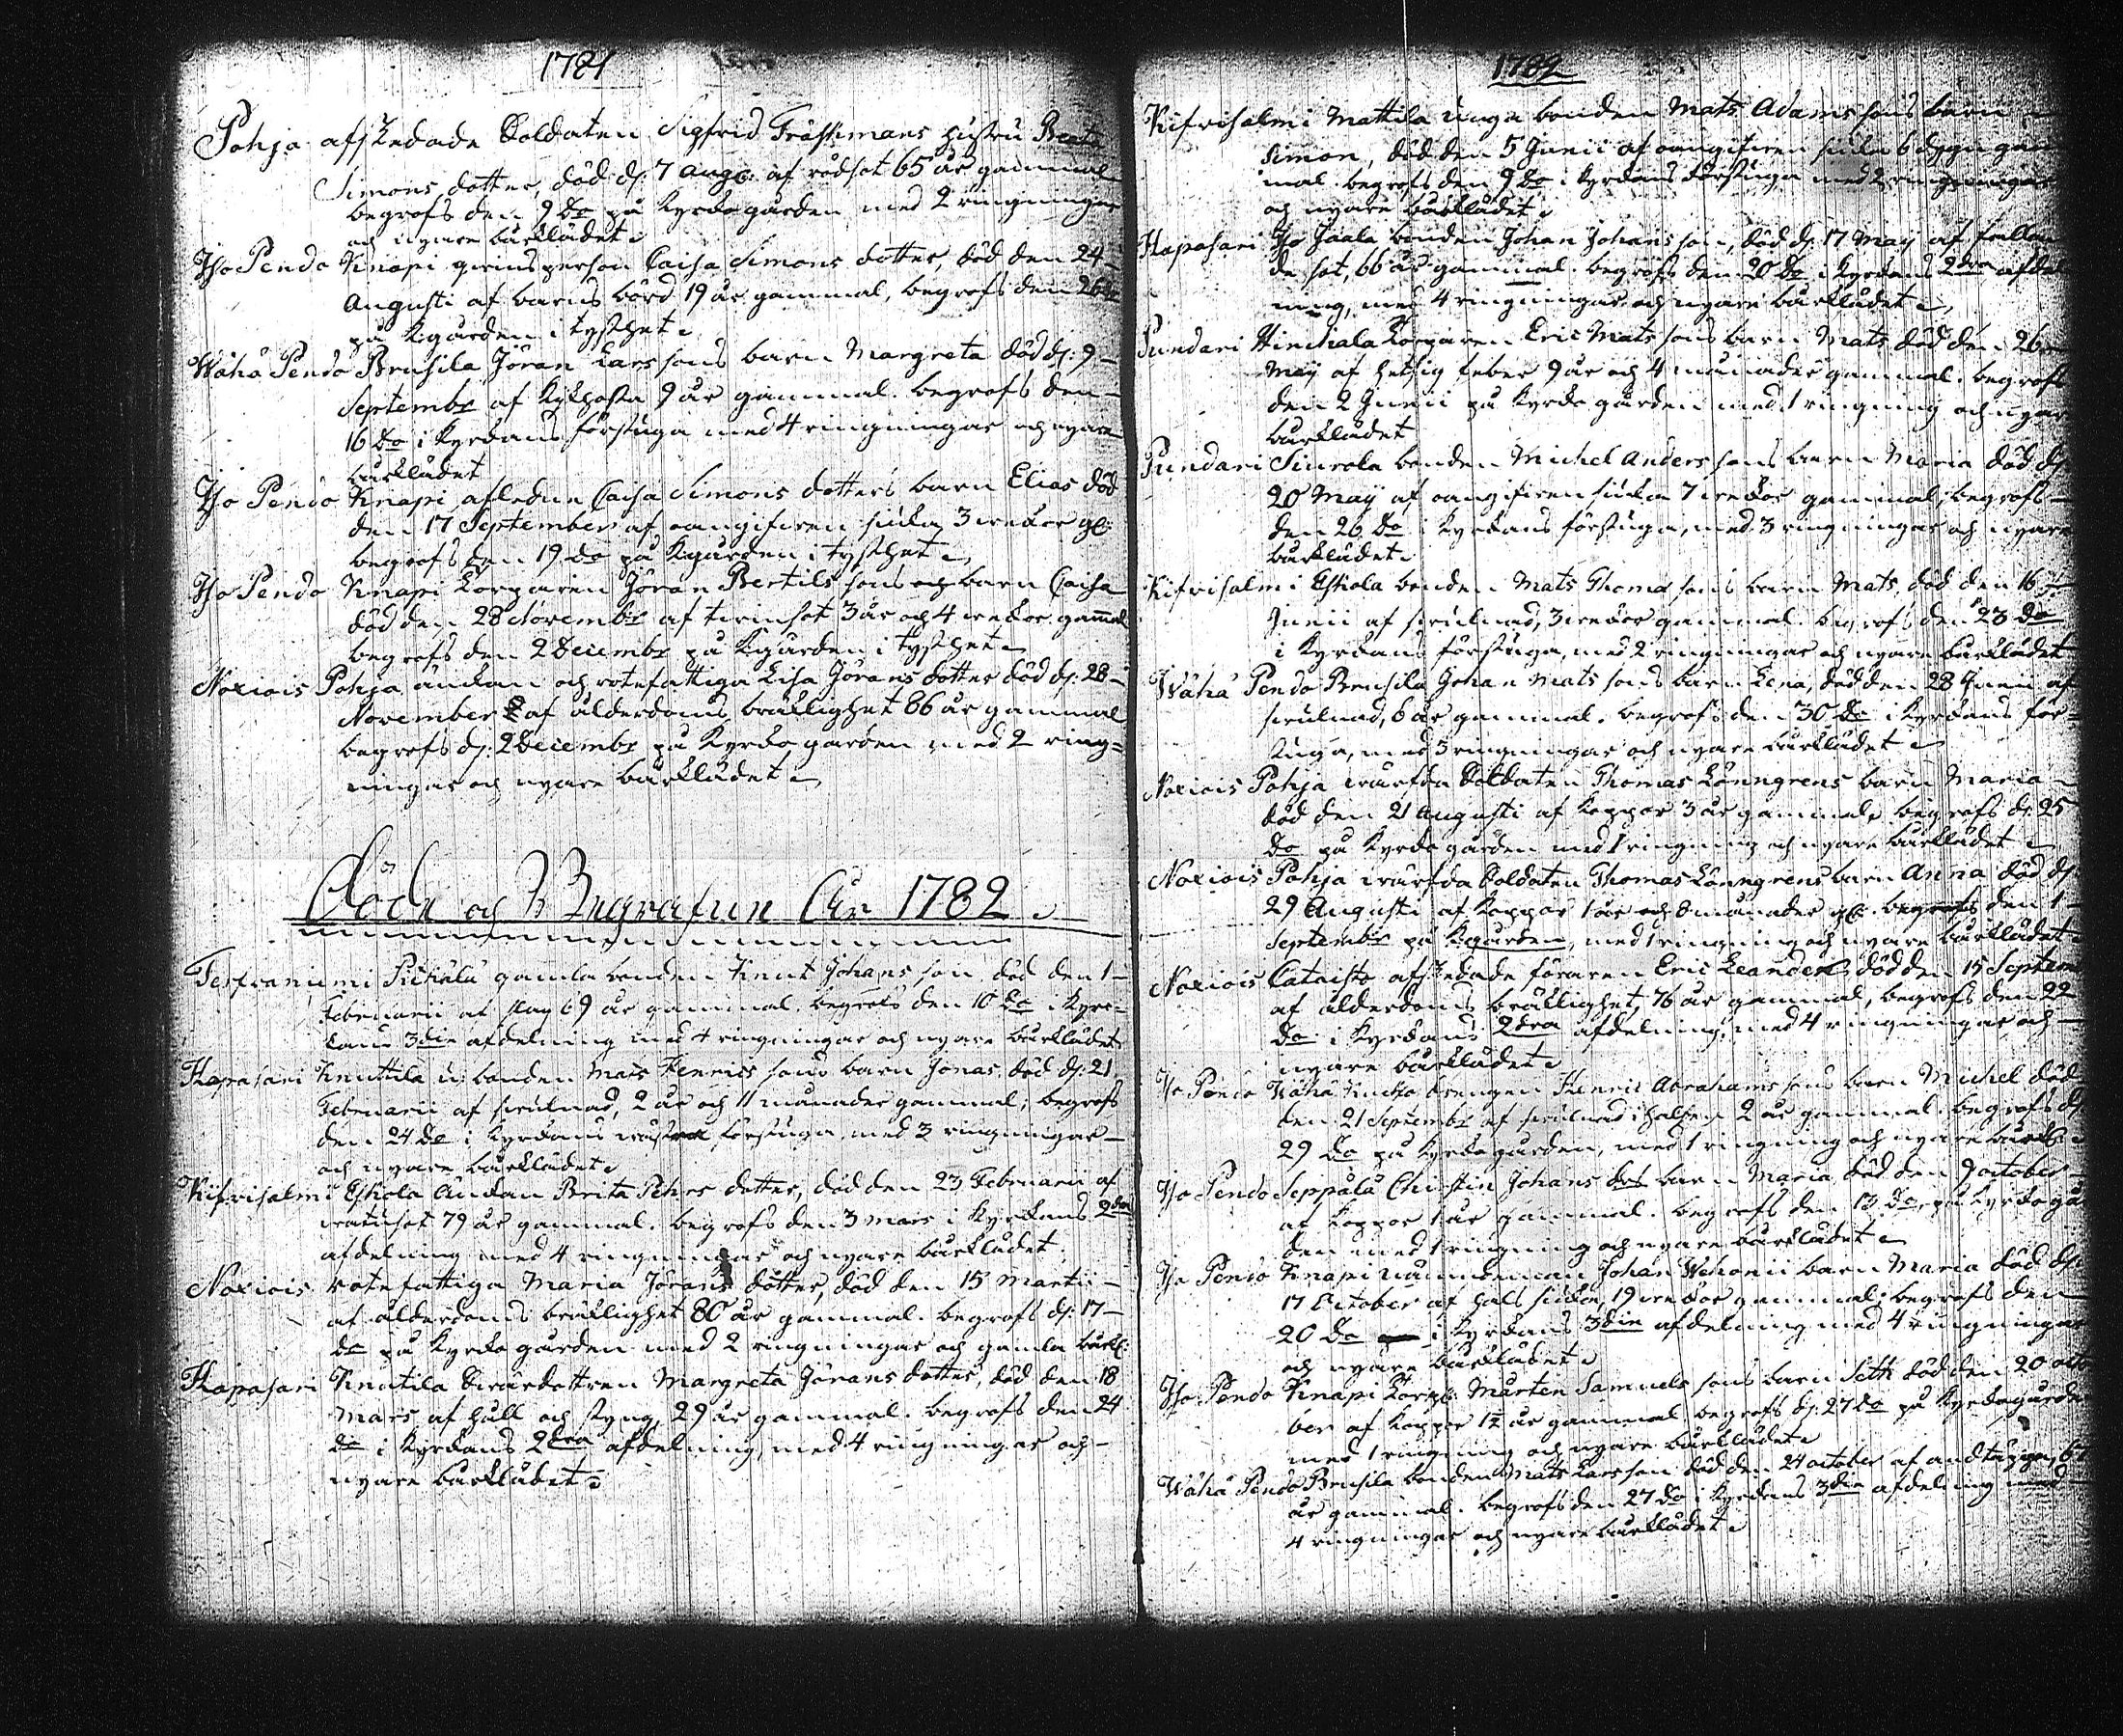 1781
Pohja afskedade Soldaten Sigfrid Trässmans hustru Beata
Simons dotter, död d: 7 Aug: af rödsot 65 år gammal
begrofs den 9 Do på Kyrkogården med 2 ringningar
och nyare bårklädet
Iso Pendo Knapi qvinsperson Caisa Simons dotter, död den 24
Augusti af barns börd 19 år gammal, begrofs den 26 Do
på Kgården i tysthet
Wähä Pendo Brusila Jöran Lars sons barn Margreta död d: 9
Septembr af Kikhosta 9 år gammal. begrofs den
16 Do i Kyrkans förstuga med 4 ringningar och nyare
bårklädet
Iso Pendo Knapi afledne Caisa Simons dotters barn Elias död
den 17 September af oangifwen siuka 3 wekor gl:
begrofs den 19 Do på Kgården i tysthet
Iso Pendo Knapi Torparen Jöran Bertils sons barn Caisa
död den 28 Novembr af twinsot 3 år och 4 wekor gammal
begrofs den 2 Decembr på Kgården i tysthet
Noxiois Pohja änkan och rotefattiga Lisa Jörans dotter död d: 28
November af ålderdoms bräcklighet 86 år gammal
begrofs d: 2 Decembr på Kyrkogården med 2 ring=
ningar och nyare bårklädet
Döde och Begrafne Åhr 1782
Terfvaniemi Pickälä gamla bonden Knut Johans son, död den 1
Februarii af slag 69 år gammal, begrofs den 10 Do i Kyr=
kans 3die afdelning med 4 ringningar och nyare bårklädet
Hapasari Knuttila u: bonden Mats Henrics sons barn Jonas, död d: 21
Februarii af swullnad, 2 år och 11 månader gammal; begrofs
den 24 Do i Kyrkans förstuga med 3 ringningar
och nyare bårklädet
Kifvisalmi Eskola Änkan Brita Pehrs dotter, död den 23 Februarii af
watusot 79 år gammal. begrofs den 3 Mars i Kyrkans 2dra
afdelning med 4 ringningar och nyare bårklädet
Noxiois rotefattiga Maria Jörans dotter, död den 15 Martii
af ålderdoms bräcklighet 80 år gammal. begrofs d: 17
Do på Kyrkogården med 2 ringningar och gamla bårkl:
Hapasari Knutila Swärdottren Margreta Jörans dotter, död den 18
Mars af håll och styng, 29 år gammal. begrofs den 24
Do i Kyrkans 2dra afdelning, med 4 ringningar och
nyare bårklädet
1782
Kifvisalmi Mattila unga bonden Mats Adams sons barn
Simon, död den 5 Junii af oangifwen siuka 6 dygn gam
mal. begrofs den 9 Do i Kyrkans förstuga med 2 ringningar
och nyare bårklädet
Hapasari Iso Jaala bonden Johan Johans son, död d: 17 May af fallan
de sot, 66 år gammal. begrofs den 20 Do i Kyrkans 2dra afdel
ning, med 4 ringningar och nyare bårklädet
Pundari Hinckala Torparen Eric Mats sons barn Mats död den 26
May af hetsig feber 9 år och 4 månader gammal. begrofs
den 2 Junii på Kyrkogården med 1 ringning och nyare
bårklädet
Pundari Siurola bonden Michel Anders sons barn Maria död d:
20 May af oangifwen siuka 7 wekor gammal; begrofs
den 26 Do i Kyrkans förstuga, med 3 ringningar och nyare
bårklädet
Kifvisalmi Eskola bonden Mats Thomas sons barn Mats, död den 16
Junii af swullnad, 3 wekor gammal. begrofs den 23 Do
i Kyrkans förstuga, med 2 ringningar och nyare bårklädet
Wähä Pendo Brusila Johan Mats sons barn Lena, död den 28 Junii af
swullnad, 6 år gammal. begrofs den 30 Do i Kyrkans för=
stuga, med 3 ringningar och nyare bårklädet
Noxiois Pohja wärfda Soldaten Thomas Lönngrens barn Maria
död den 21 Augusti af Koppor 3 år gammal, begrofs d: 25
Do på Kyrkogården med 1 ringning och nyare bårklädet
Noxiois Pohja wärfda Soldaten Thomas Lönngrens barn Anna död d:
29 Augusti af Koppor 1 år och 8 månader gl: begrofs den 1
Septembr på Kgården, med 1 ringning och nyare bårklädet
Noxiois Cataisto afskedade föraren Eric Leander, död den 15 Septem
af ålderdoms bräcklighet, 76 år gammal, begrofs den 22
Do i Kyrkans 2dra afdelning, med 4 ringningar och
nyare bårklädet
Iso Pendo Wähä Drengen Henric Abrahams sons barn Michel död
den 21 Septembr af swullnad i halsen 2 år gammal. begrofs d:
29 Do på Kyrkogården, med 1 ringning och nyare bårkl:
Iso Pendo Seppälä Christin Johans dotters barn Maria död den 9 October
af Koppor 1 år gammal. begrofs den 13 Do, på Kyrkogår
den med 1 ringning och nyare bårklädet
Iso Pendo Knapi nämndeman Johan barn Maria död d:
17 October af hals siuka, 19 wekor gammal; begrofs den
20 Do i Kyrkans 3die afdelning med 4 ringningar
och nyare bårklädet
Iso Pendo Knapi Torp: Mårten Samuels sons barn Seth död den 20 octo
ber af Koppor 1½ år gammal begrofs d: 27 Do på Kyrkogården
med 1 ringning och nyare bårklädet
Wähä Pendo Brusila bonden Mats Lars son död den 24 october af andtäppa, 67
år gammal. begrofs den 27 Do i Kyrkans 3die afdelning med
4 ringningar och nyare bårklädet